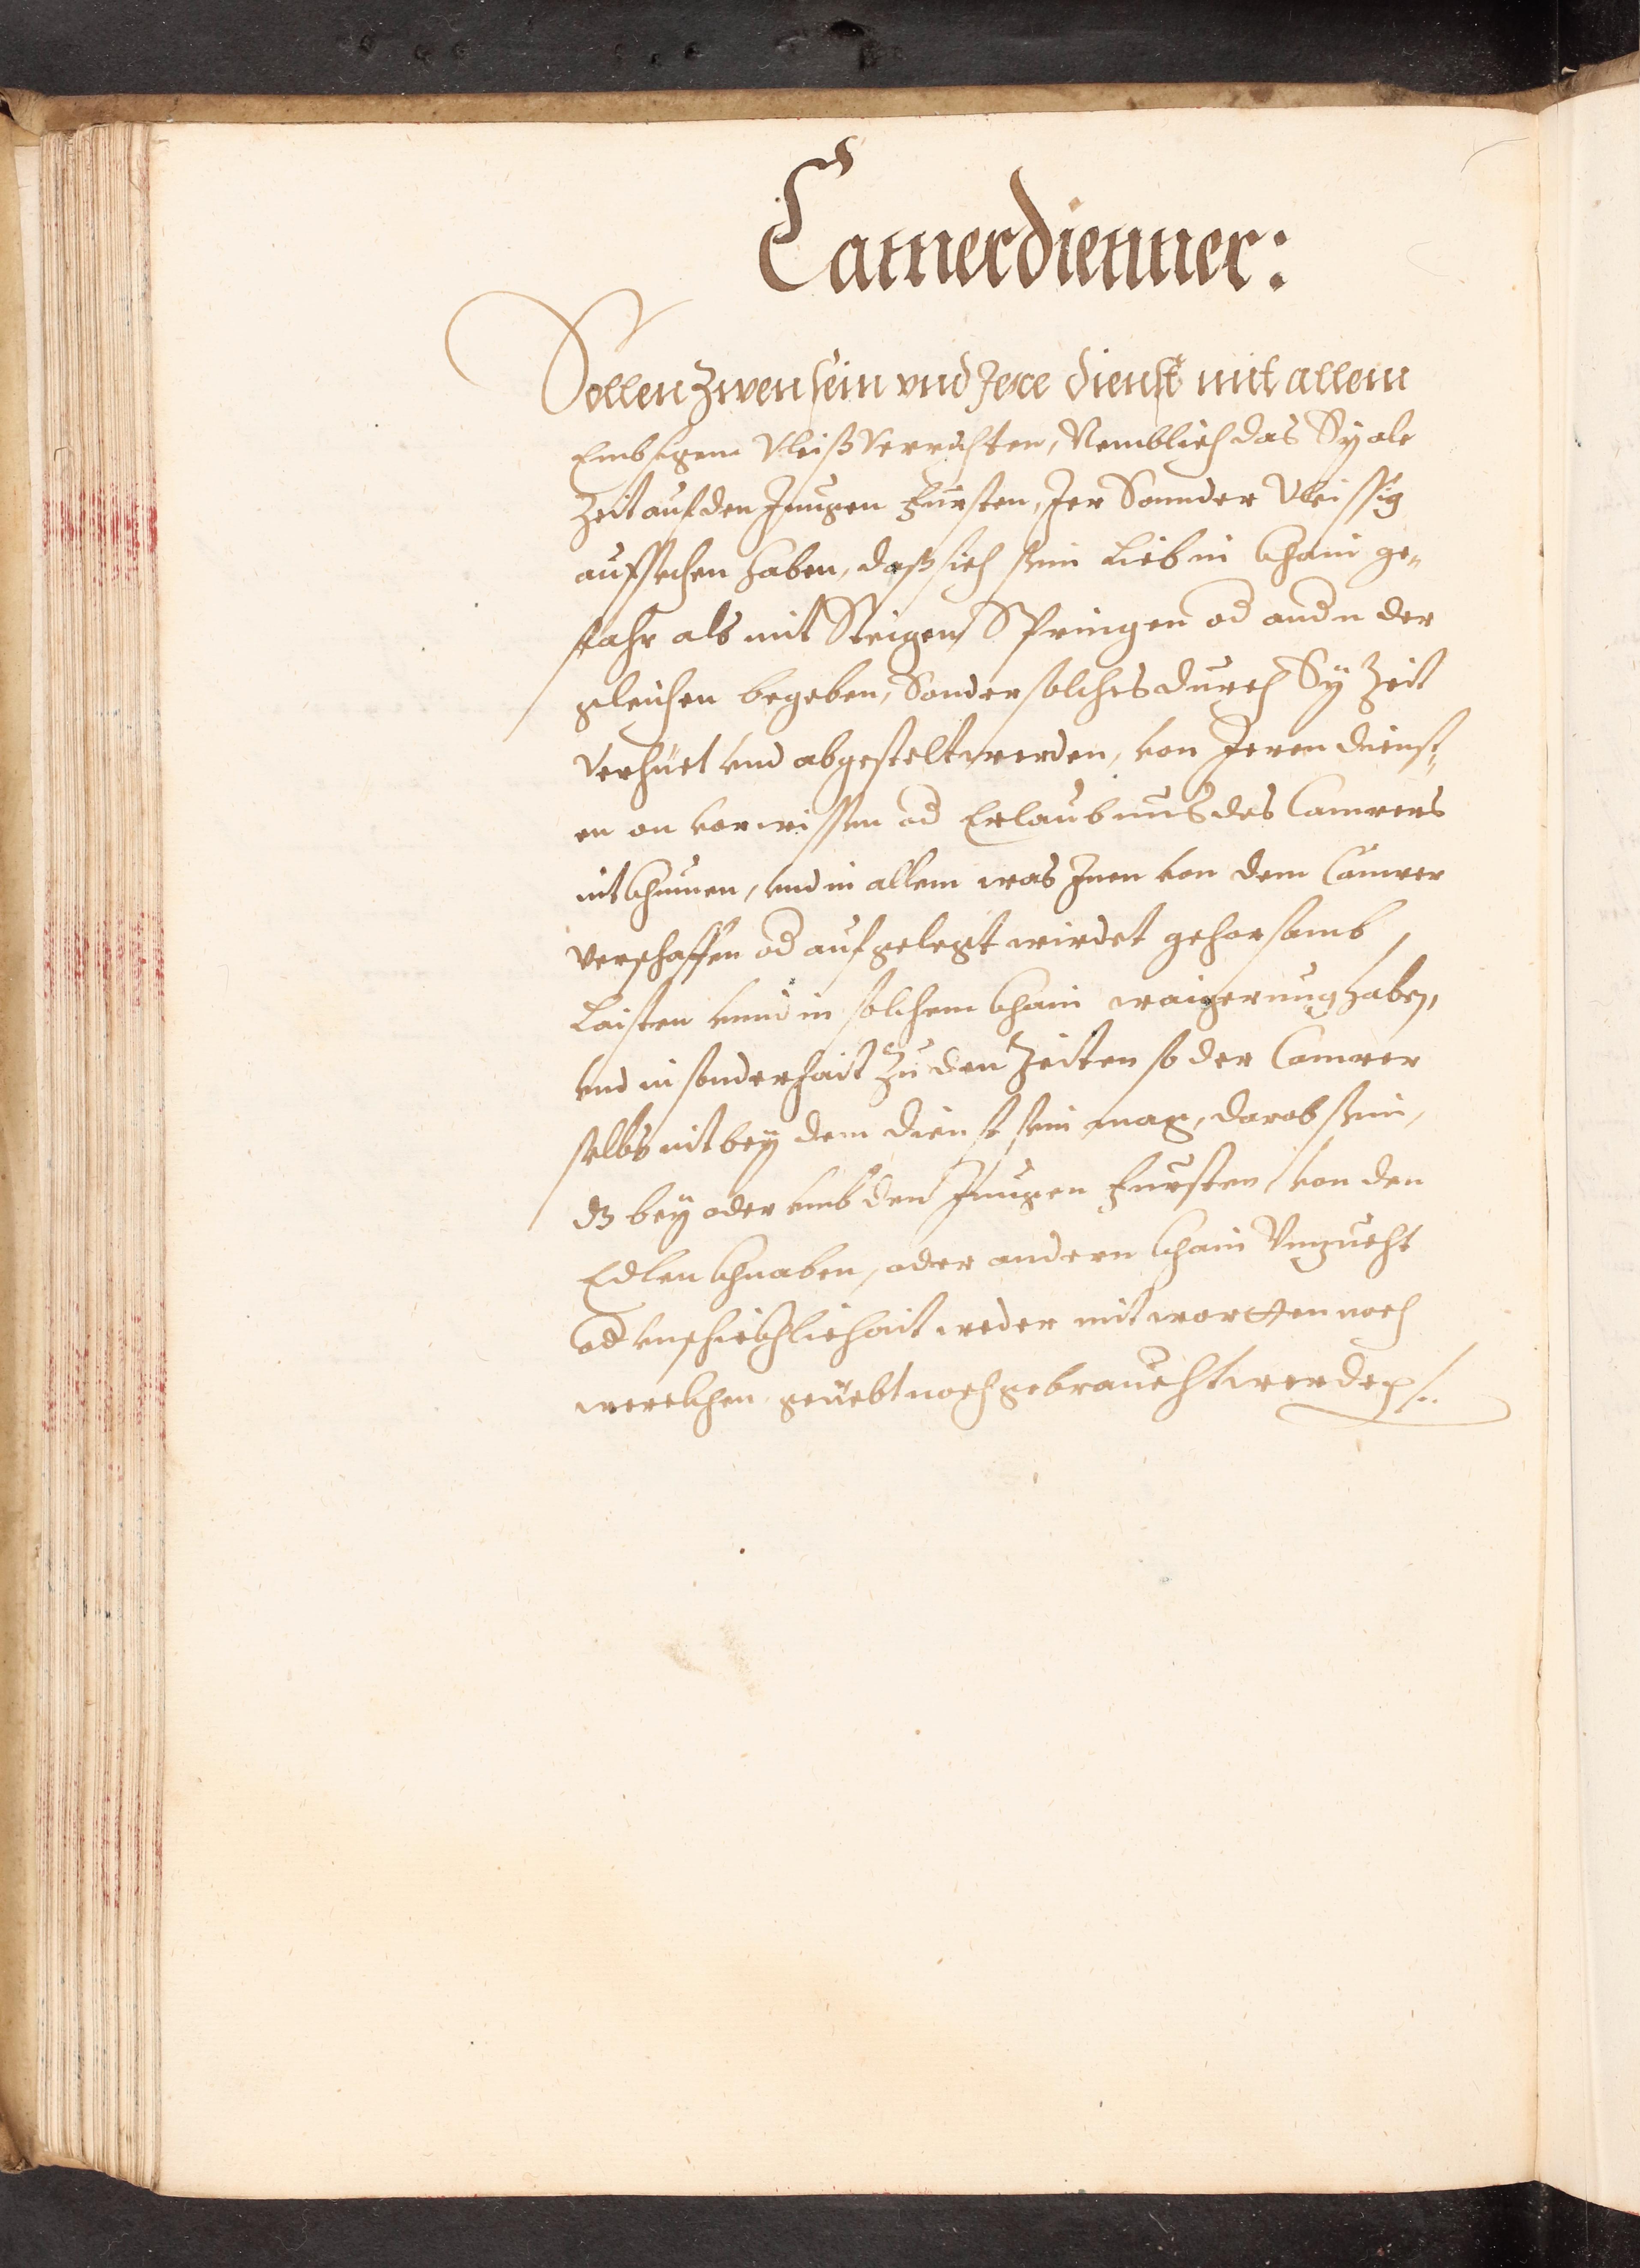 Camerdienner:
Sollen zwen sein vnd Jere dienst mit allem
Embsigem Vleiß Verrichten, Nemblich das Sy ale
Zeit auf den Jungen Fursten, Jer Sonnder Vleissig
aufsechen haben, daß sich sein Lieb in khain ge-
fahr als mit Steigen Springen od andn der
gleichen begeben, Sonder solches durch Sÿ Zeit
Verhüet vnd abgestelt werden, von Jeren dienst-
en on vorwissen od Erlaubnus des Camrers
nit khumen, vnd in allem was Jnen von dem Camrer
verschaffen od aufgelegt wirdet gehorsamb
Laisten vnnd in solchem khain waigerung haben,
vnd in sonderhait Zu den Zeiten so der Camrer
selbs nit beÿ dem dienst sein mag, darob sein,
dz beÿ oder vmb den Jungen Fursten von den
Edlen khnaben, oder andern khain Vnzucht
od vnschickhlichait weder mit wortten noch
werckhen geüebt noch gebraucht werden /..